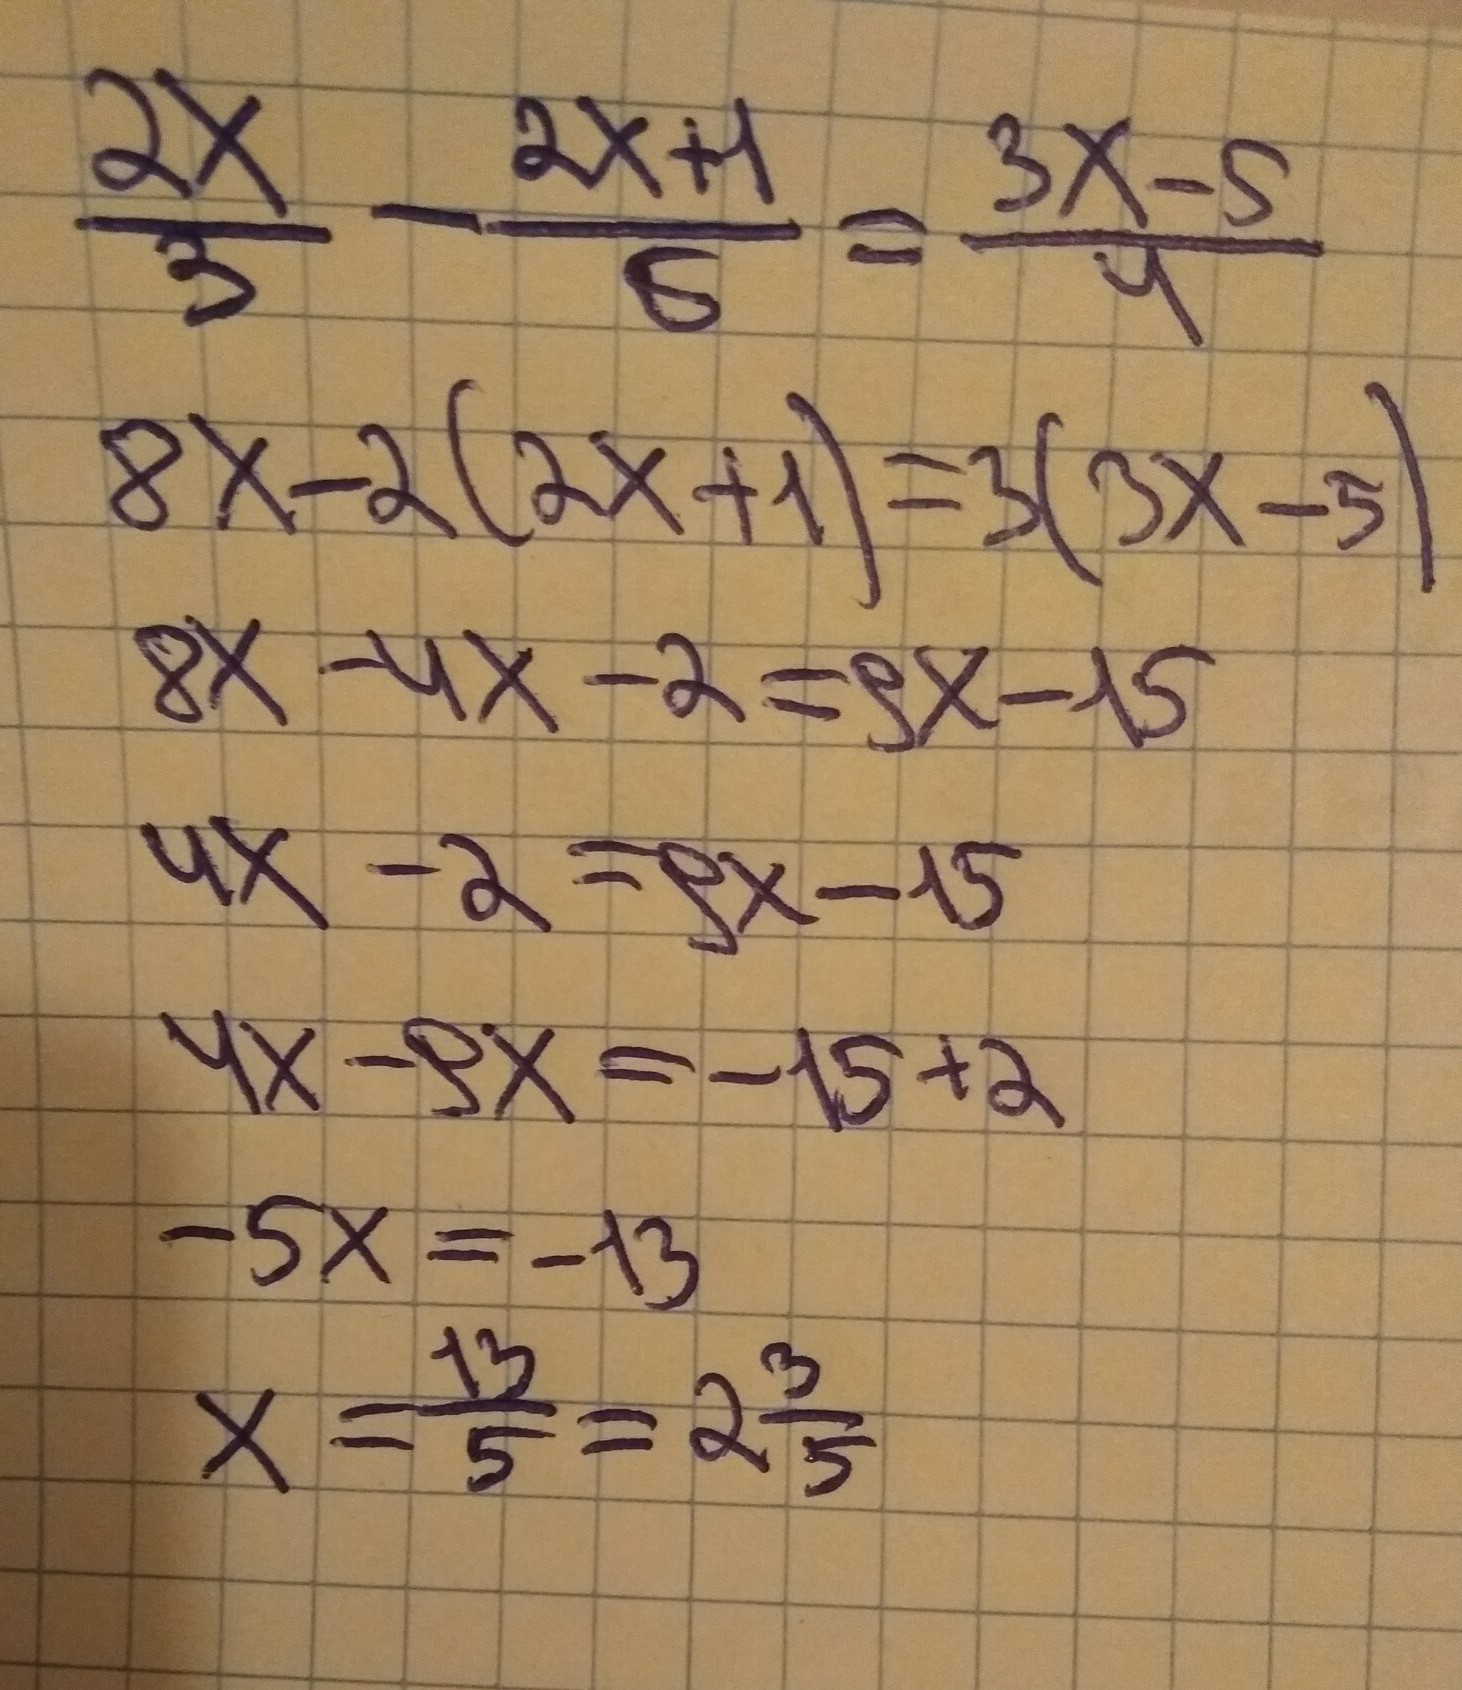 2x/3 - 2x+1/6 = 3x-5/4
8x-2(2x+1)=3(3x-5)
8x-4x-2=9x-15
4x-2=9x-15
4x-9x=-15+2
-5x=-13
x=13/5=2 3/5